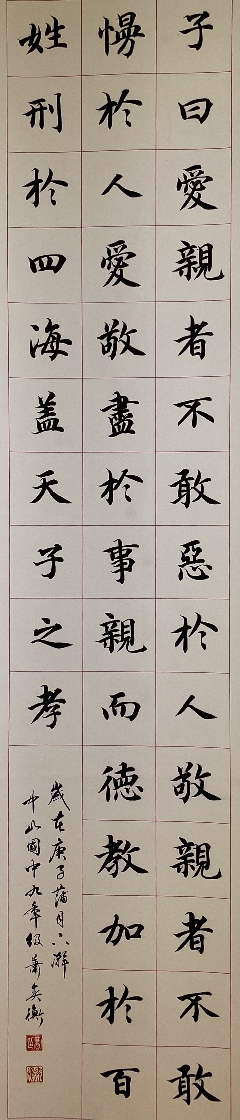 子曰愛親者不敢惡於人敬親者不敢
慢於人愛敬盡於事親而德教加於百
姓刑於四海蓋天子之孝
歲在庚子蒲月六澣
中山國中九年級蕭奕衡